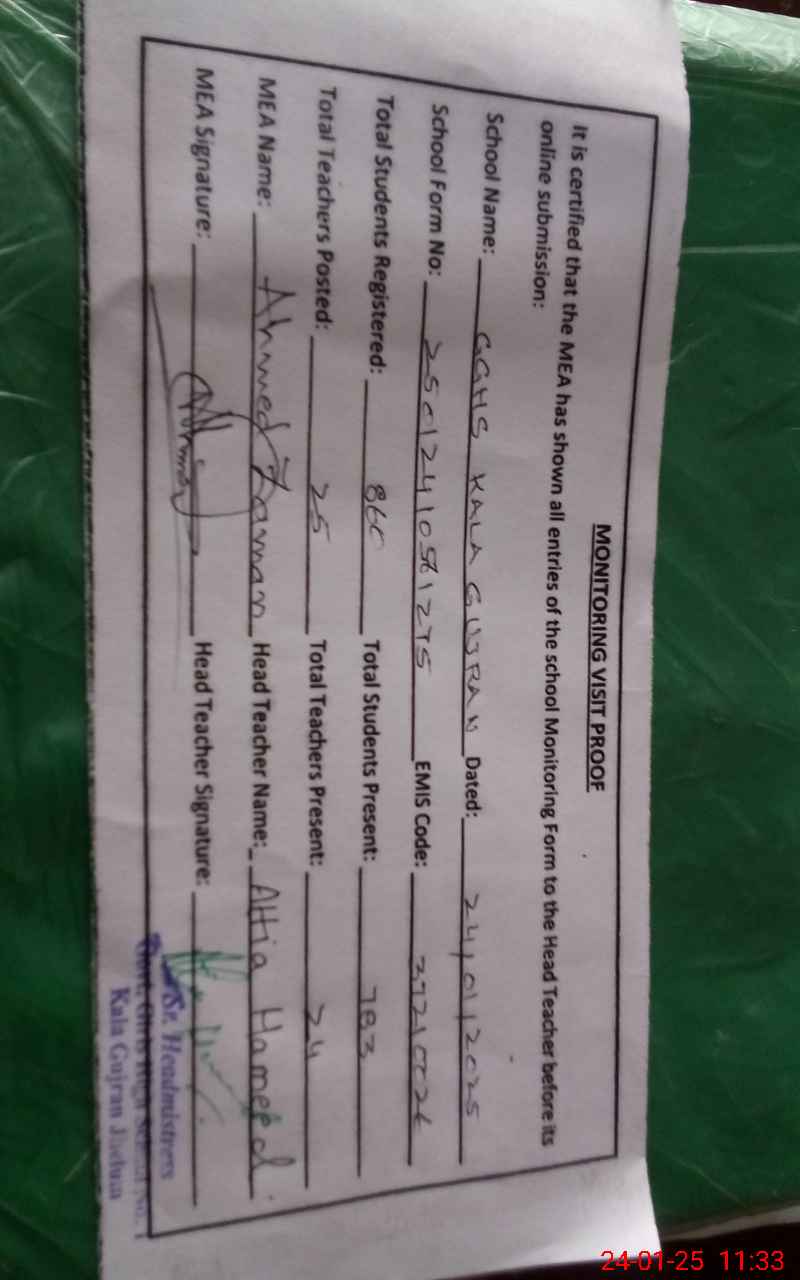 MONITORING VISIT PROOF
It is certified that the MEA has shown all entries of the school Monitoring Form to the Head Teacher before its
online submission:
School Name: GGHS KALA GUJRAN Dated: 24/01/2025
School Form No: EMIS Code:
Total Students Registered: Total Students Present: 783
Total Teachers Posted: 25 Total Teachers Present: 24
MEA Name: Ahmed Zaman Head Teacher Name: Attia Hameed
MEA Signature: Head Teacher Signature:
Sr. Headmistress
Govt. Girls High School No. 1
Kala Gujran Jhelum
24-01-25 11:33